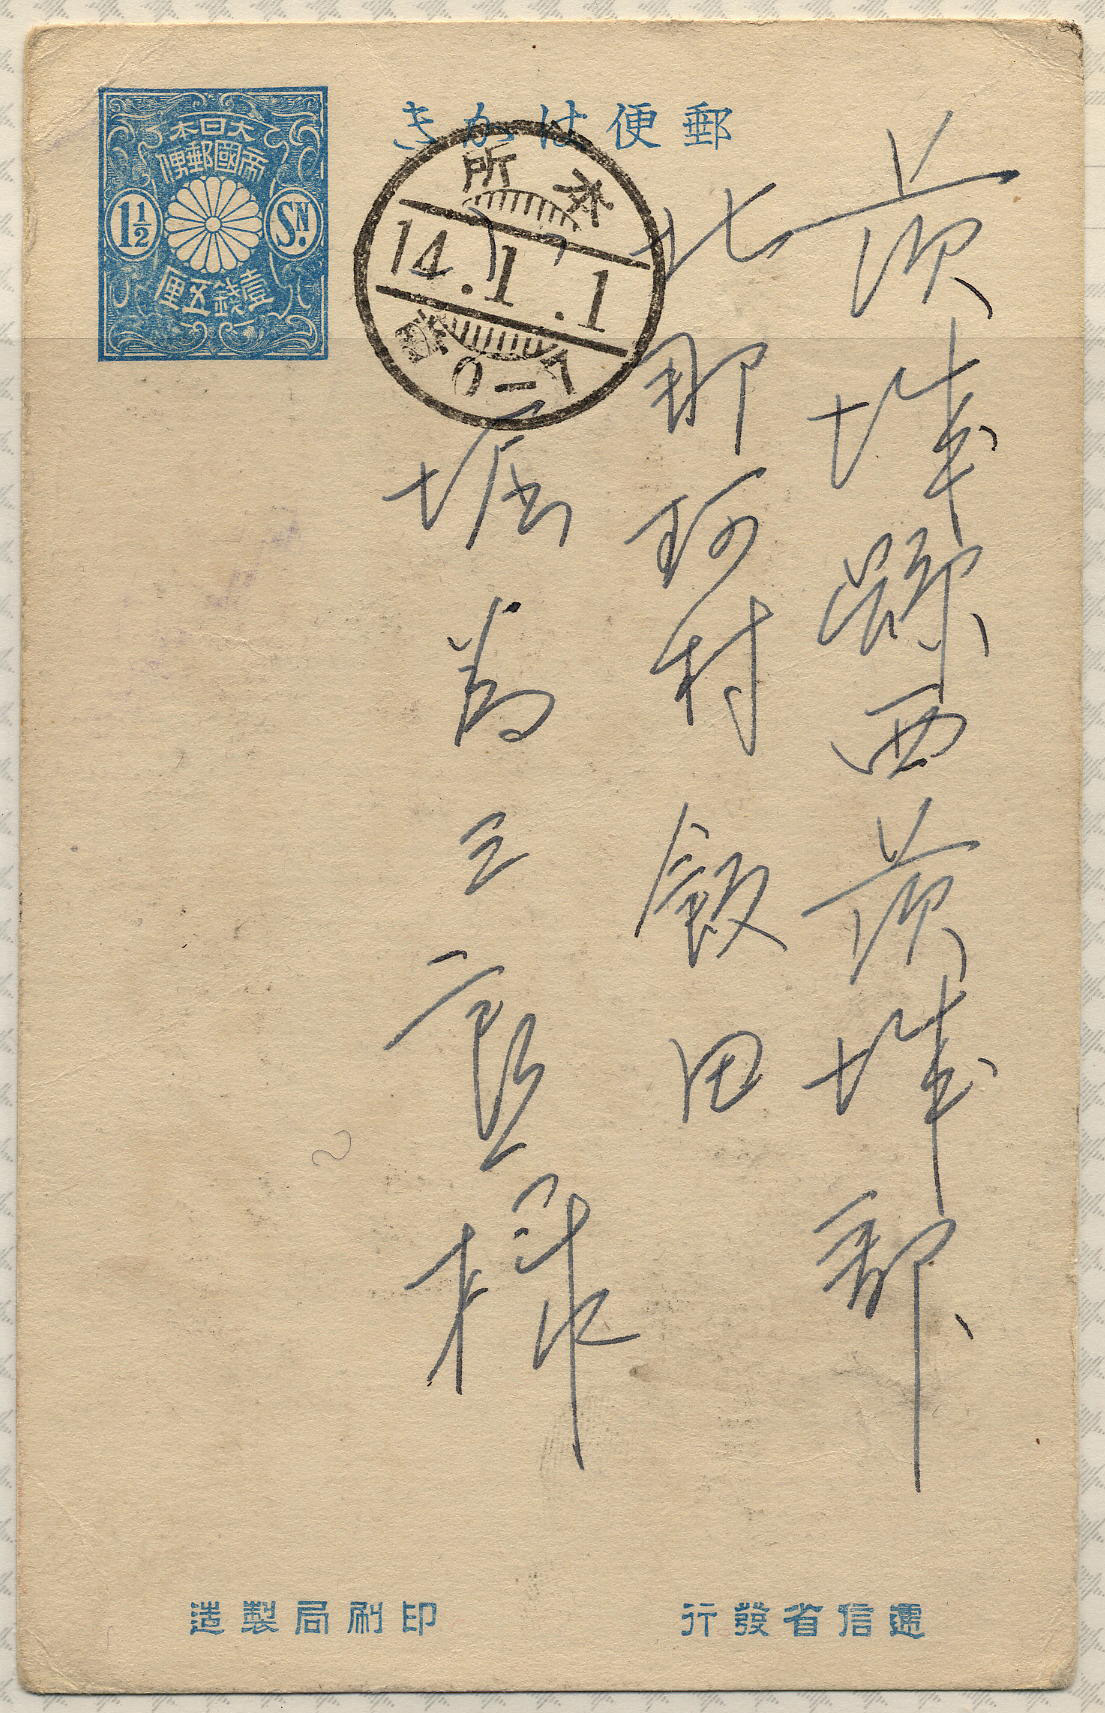 郵便はがき
大日本
帝國郵便
1½
SN.
壹錢五厘
本所
14.1.1
0-7
茨城縣西茨城郡
北那珂村 飯田
堀
三郎
様
遞信省發行
印刷局製造